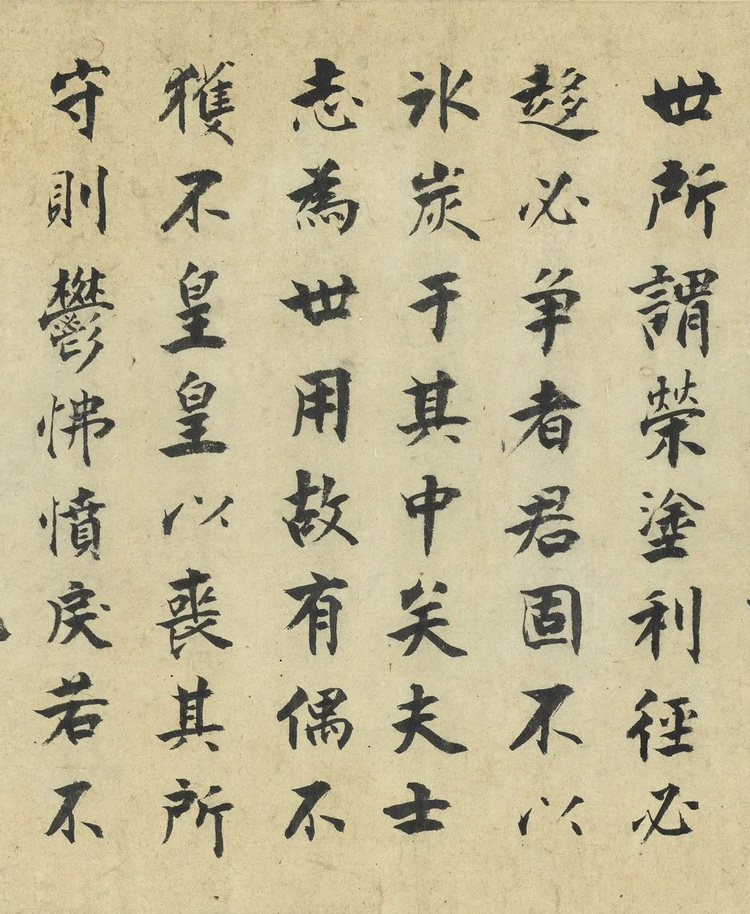 世所謂榮塗利徑必
趍必爭者君固不以
氷炭于其中矣夫士
志為世用故有偶不
獲不皇皇以喪其所
守則鬱怫憤戾若不